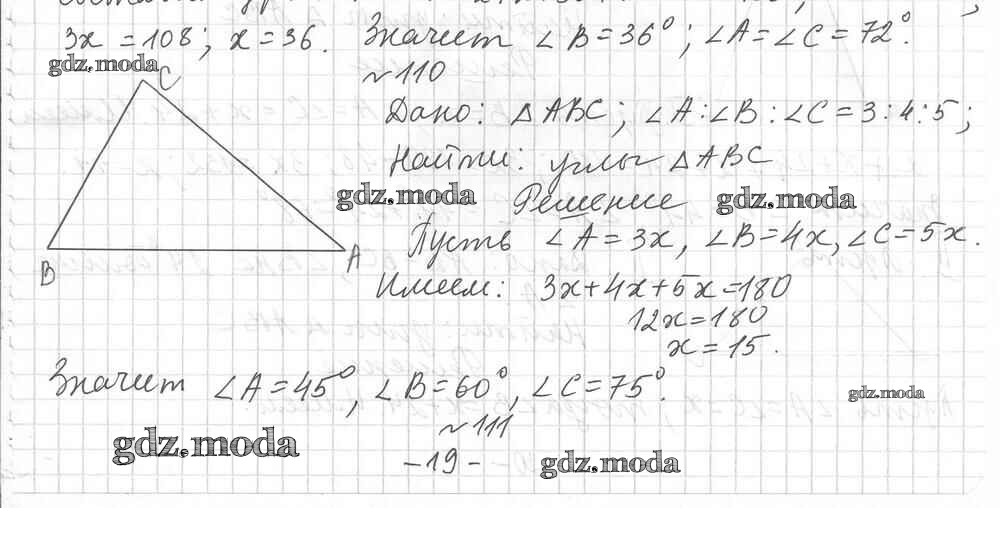 3x = 108; x = 36. Значит ∠B = 36°; ∠A = ∠C = 72°.
gdz.moda
№110
C
Дано: △ABC; ∠A:∠B:∠C = 3:4:5;
Найти: углы △ABC
gdz.moda Решение gdz.moda
Пусть ∠A = 3x, ∠B = 4x, ∠C = 5x.
B A
Имеем: 3x+4x+5x=180
12x=180
x=15.
Значит ∠A=45°, ∠B=60°, ∠C=75°.
gdz.moda
№111
gdz.moda
-19-
gdz.moda